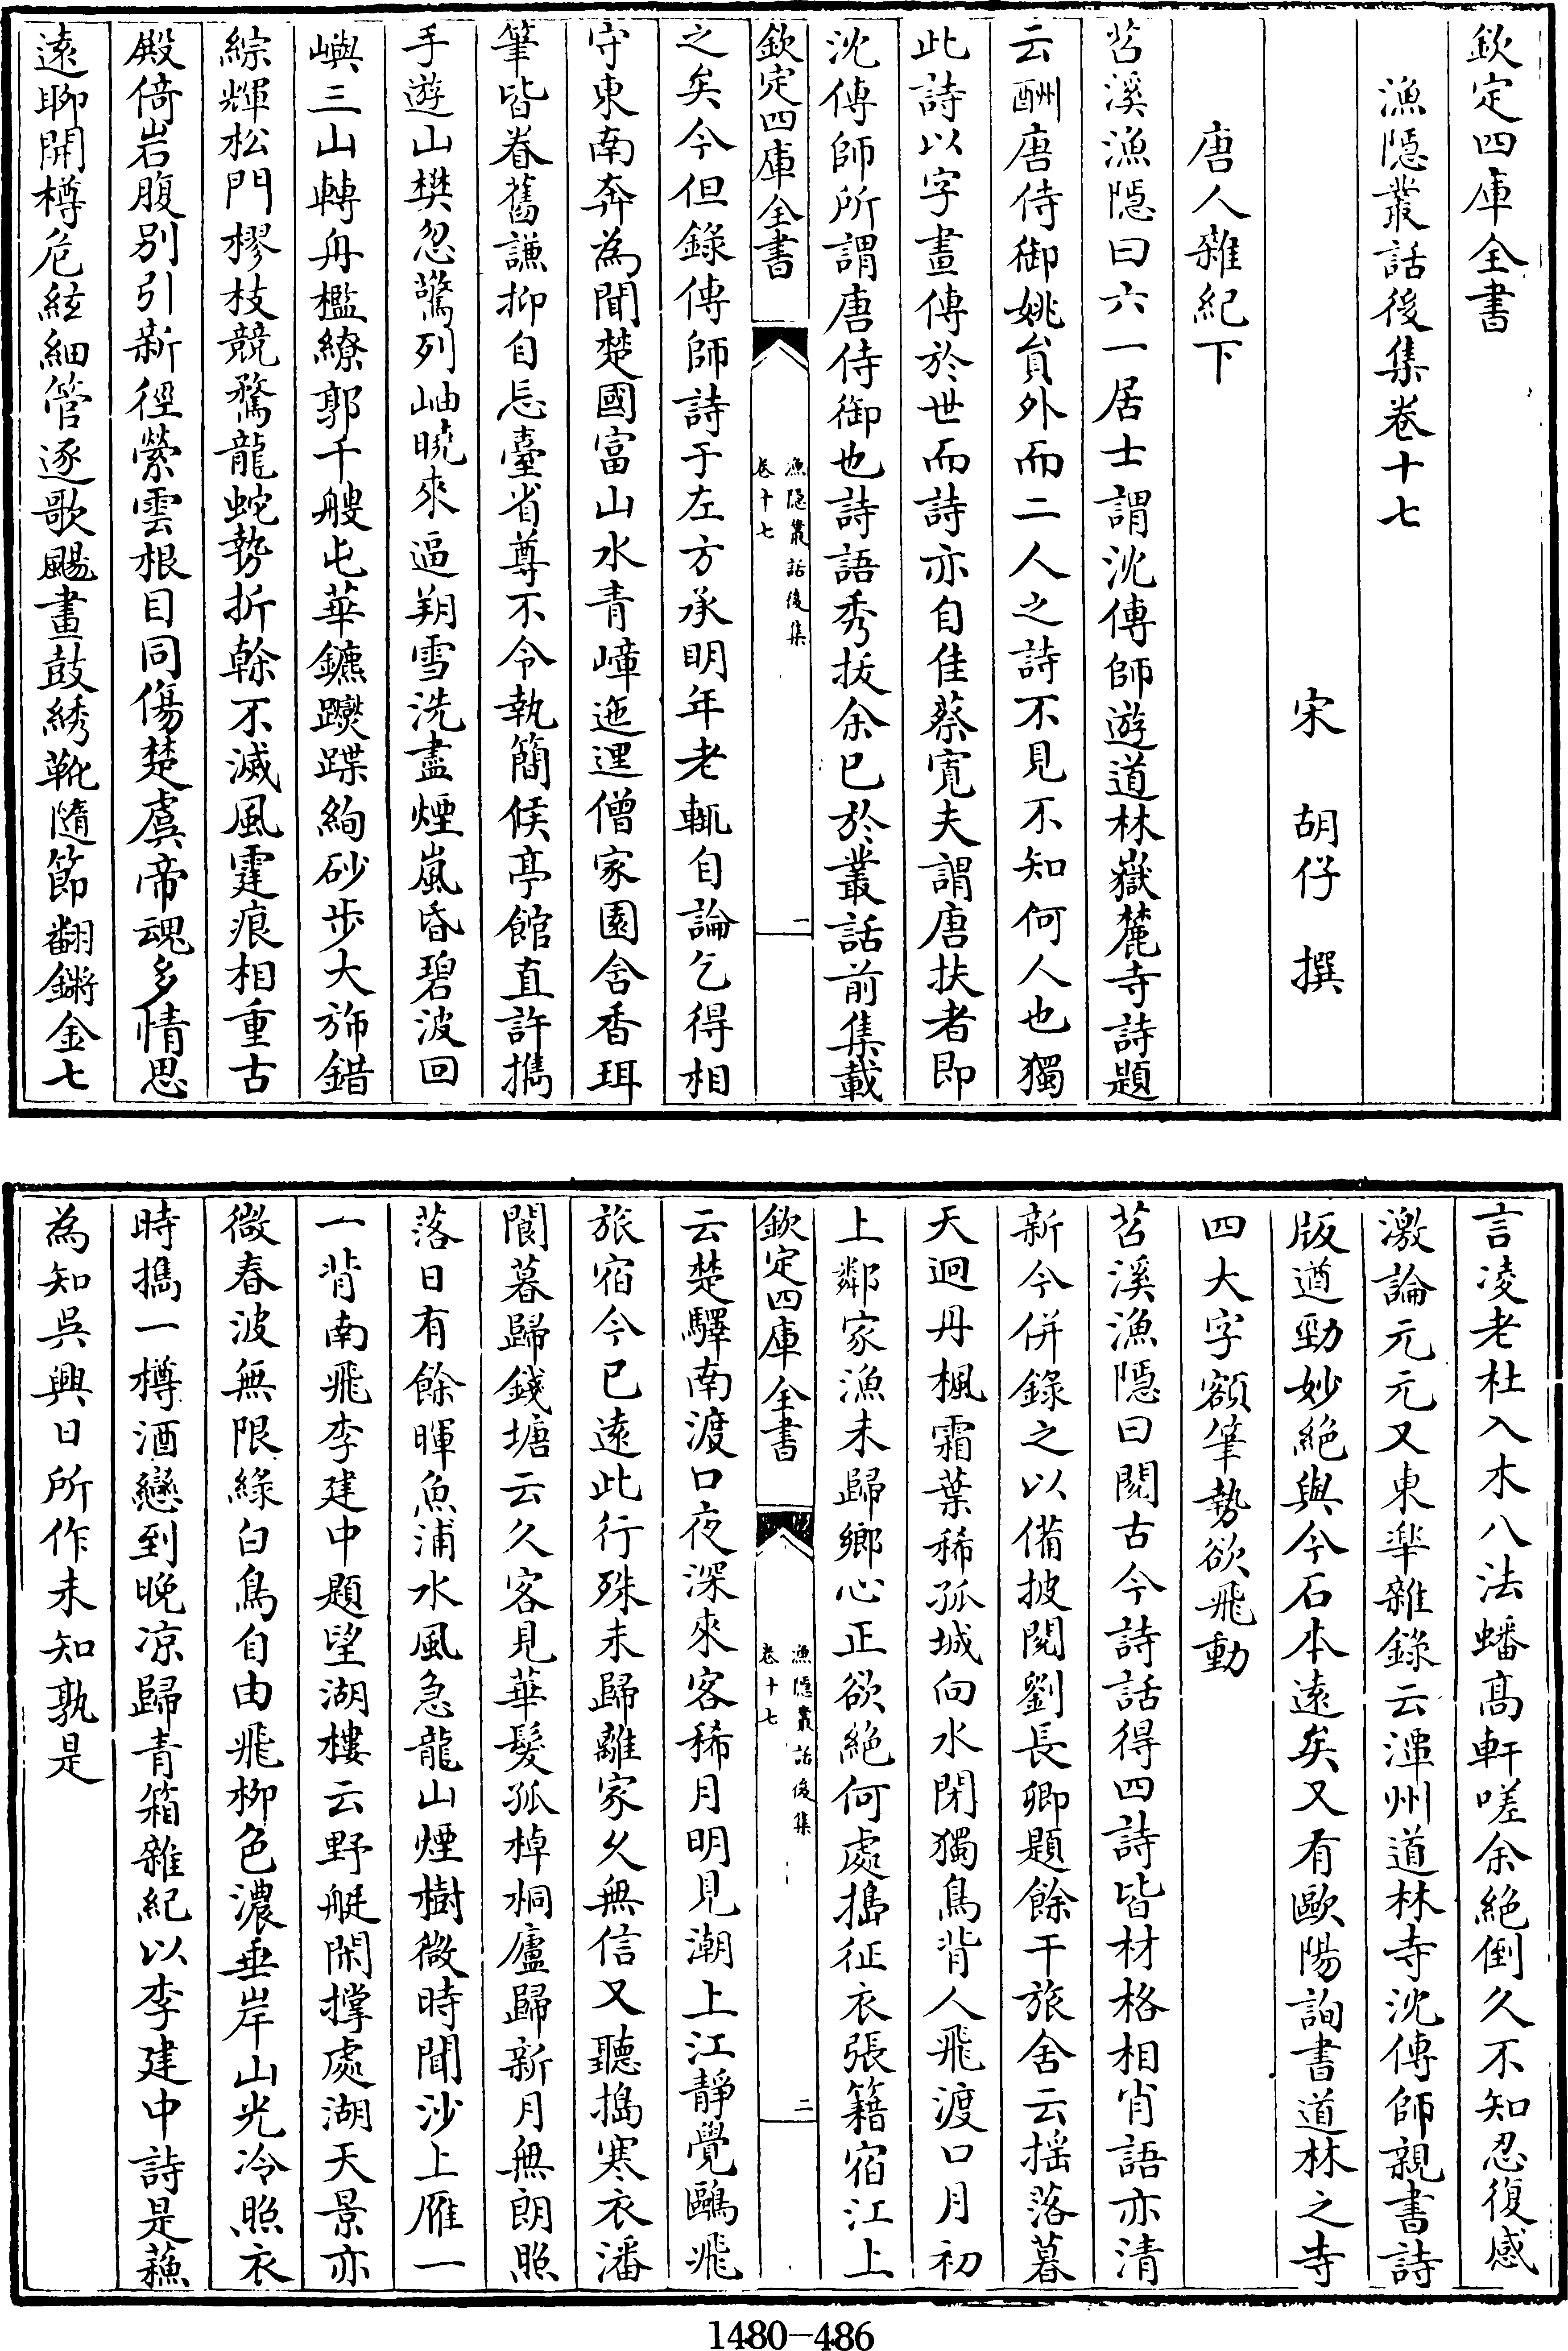 欽定四庫全書
漁隱叢話後集卷十七
宋　胡仔　撰
唐人雜紀下
苕溪漁隱曰六一居士謂沈傳師遊道林嶽麓寺詩題
云酬唐侍御姚員外而二人之詩不見不知何人也獨
此詩以字畫傳於世而詩亦自佳蔡寬夫謂唐扶者即
沈傳師所謂唐侍御也詩語秀拔余已於叢話前集載
欽定四庫全書
漁隱叢話後集
卷十七
一
之矣今但錄傳師詩于左方承明年老輒自論乞得相
守東南奔為聞楚國富山水青嶂迤邐僧家園含香珥
筆皆眷舊謙抑自忘臺省尊不令執簡候亭館直許攜
手遊山樊忽驚列岫曉來逼朔雪洗盡煙嵐昏碧波回
嶼三山轉舟檻繚郭千艘屯華鑣躞蹀絢砂步大斾錯
綜輝松門樛枝競騖龍蛇勢折榦不滅風霆痕相重古
殿倚岩腹別引新徑縈雲根目同傷楚虞帝魂多情思
遠聊開樽危絃細管逐歌颺畫鼓綉靴隨節翻鏘金七
言凌老杜入木八法蟠高軒嗟余絕倒久不知忍復感
激論元元又東臯雜錄云潭州道林寺沈傳師親書詩
版遒勁妙絕與今石本遠矣又有歐陽詢書道林之寺
四大字額筆勢欲飛動
苕溪漁隱曰閱古今詩話得四詩皆材格相肖語亦清
新今併錄之以備披閱劉長卿題餘干旅舍云搖落暮
天迥丹楓霜葉稀孤城向水閉獨鳥背人飛渡口月初
上鄰家漁未歸鄉心正欲絕何處搗征衣張籍宿江上
欽定四庫全書
漁隱叢話後集
卷十七
二
云楚驛南渡口夜深來客稀月明見潮上江靜覺鷗飛
旅宿今已遠此行殊未歸離家久無信又聽搗寒衣潘
閬暮歸錢塘云久客見華髮孤棹桐廬歸新月無朗照
落日有餘暉魚浦水風急龍山煙樹微時聞沙上雁一
一背南飛李建中題望湖樓云野艇閒撐處湖天景亦
微春波無限綠白鳥自由飛柳色濃垂岸山光冷照衣
時攜一樽酒戀到晚凉歸青箱雜紀以李建中詩是蘓
為知吳興日所作未知孰是
1480—486